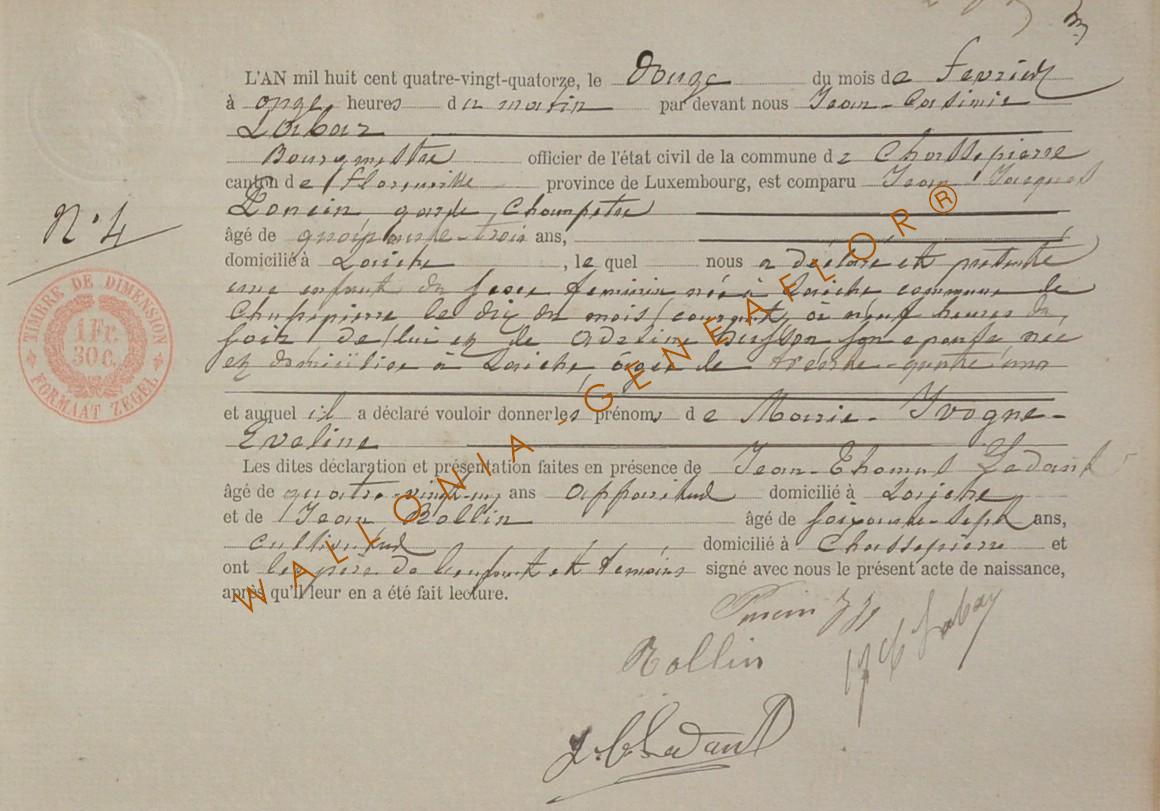 N° 4
TIMBRE DE DIMENSION
1 Fr.
30 c.
FORMAAT ZEGEL
L'AN mil huit cent quatre-vingt-quatorze, le douze du mois de fevrier
à onze heures du matin par devant nous Jean-Casimir
Labar
Bourgmestre officier de l'état civil de la commune de Chassepierre
canton de Florenville province de Luxembourg, est comparu Jean Jacques
garde Champetre
âgé de ans,
domicilié à Laiche, le quel nous a déclaré et présenté
une enfant du sexe feminin née à Laiche commune de
Chassepierre le dix du mois courant, à neuf heures du
soir, de lui et de Adeline son epouse née
et domiciliée à Laiche, âgée de trente-quatre ans
et auquel il a déclaré vouloir donner les prénoms de Marie-Yvogne-
Eveline
Les dites déclaration et présentation faites en présence de Jean-Thomas Ledant
âgé de quatre-vingt-un ans appariteur domicilié à Laiche
et de Jean Rollin âgé de soixante-sept ans,
cultivateur domicilié à Chassepierre et
ont les père de l'enfant et témoins signé avec nous le présent acte de naissance,
après qu'il leur en a été fait lecture.
Rollin
Labar
Ledant
WALLONIA - GENEAFLOR®